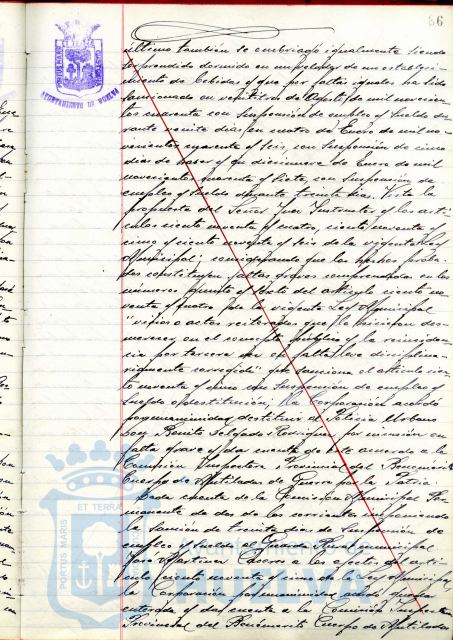 86
PORTUS MARIS ET TERRAE
AYUNTAMIENTO DE HUELVA
último también se embriagó igualmente siendo
sorprendido dormido en un de un estableci-
miento de bebidas y que por faltas iguales ha sido
sancionado en veintitres de Agosto de mil novecien
tos cuarenta con suspensión de empleo y sueldo du-
rante veinte días, en cuatro de Enero de mil no-
vecientos cuarenta y seis, con suspensión de cinco
días de haber y en diecinueve de Enero de mil
novecientos cuarenta y siete, con suspensión de
empleo y sueldo durante treinta días. Vista la
propuesta del Señor Juez Instructor y los artí-
culos ciento noventa y cuatro, ciento noventa y
cinco y ciento noventa y seis de la vigente Ley
Municipal; considerando que los hechos proba-
dos constituyen faltas graves comprendidas en los
números quinto y sexto del artículo ciento no-
venta y cuatro de la vigente Ley Municipal
"vicios o actos reiterados que le hicieran des-
merecer en el concepto público y la reinciden-
cia por tercera vez en falta leve disciplina-
riamente corregida" que sanciona el artículo cien-
to noventa y cinco con suspensión de empleo y
sueldo o destitución; la Corporación acordó
por unanimidad destituir al Policía Urbano
Don Benito Delgado Rodríguez por en
falta grave y dar cuenta de este acuerdo a la
Comisión Inspectora Provincial del Benemérito
Cuerpo de Mutilados de Guerra por la Patria.
Dada cuenta de la Comisión Municipal Per
manente de dos de los corrientes imponiendo
la sanción de treinta días de suspensión de
empleo y sueldo al Guarda Rural municipal
José Martínez a los efectos del artí-
culo ciento noventa y cinco de la Ley Municipal,
la Corporación por unanimidad acordó quedar
enterada y dar cuenta a la Comisión Inspectora
Provincial del Benemérito Cuerpo de Mutilados
PORTUS MARIS ET TERRAE
Ayuntamiento de
HUELVA